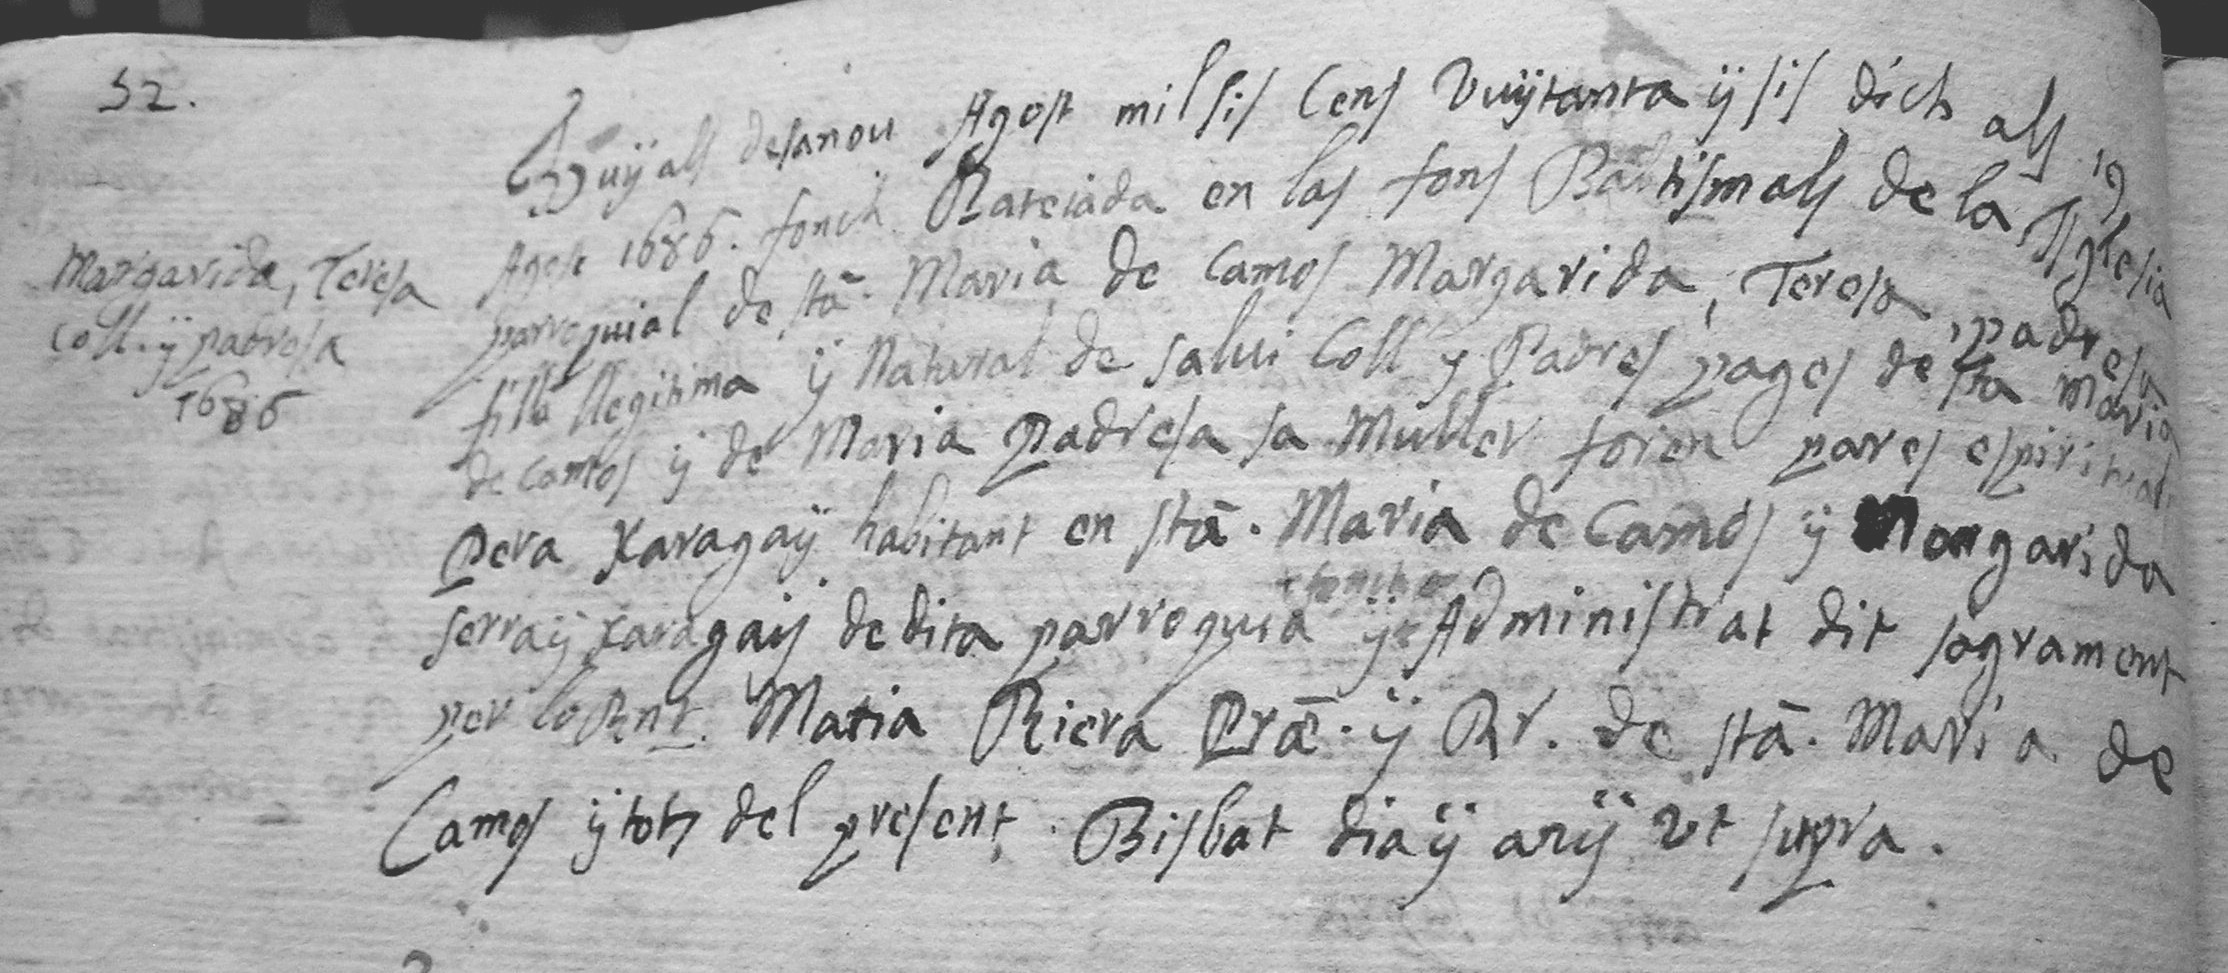 52.
Vuÿ als desanou Agost mil sis Cens Vuÿtanta ÿ sis dich als 19
Agost 1686. fonch Bateiada en las fons Babtismals de la Yglesia
Margarida, Teresa
parroquial de stā. Maria de Camos Margarida, Teresa, padresa
Coll ÿ padresa
filla llegitima ÿ Natural de salui Coll y Padres pages de sta Maria
1686
de Camos ÿ de Maria Padresa sa Muller foren pares espirituals
Pera Xaragaÿ habitant en stā. Maria de Camos ÿ Margarida
serra ÿ Xaragaÿ de dita parroquia ÿ Administrat dit sagrament
per lo Rnt. Matia Riera Prā. ÿ Rr. de stā. Maria de
Camos ÿ tots del present Bisbat dia ÿ anÿ Vt supra.